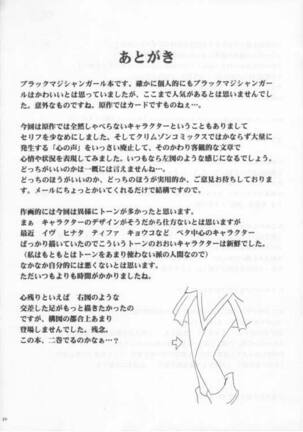 あとがき
ブラックマジシャンガール本です。確かに個人的にもブラックマジシャンガー
ルはかわいいとは思っていましたが、ここまで人気があるとは思いませんでし
た。意外なものですね。原作ではカードですものねぇ…。
今回は原作では全然しゃべらないキャラクターということもありまして
セリフを少なめにしました。そしてクリムゾンコミックスではかならず大量に
発生する「心の声」をいっさい廃止して、そのかわり客観的な文章で
心情や状況を表現してみました。いつもなら左図のような感じになるでしょう。
どっちがいいのかは一概には言えませんね…。
どっちのほうがいいのか、どっちのほうが実用的なのか、ご意見お待ちしておりま
す。メールにちょっとかいてくれるだけで結構ですので。
作画的には今回は異様にトーンが多かったと思います。
まぁ キャラクターのデザインがそうだから仕方ないとは思いますが
最近 イヴ ヒナタ ティファ キョウコなど ベタ中心のキャラクター
ばっかり描いていたのでこういうトーンのおおいキャラクターは新鮮でした。
（私はもともとはトーンをあまり使わない派の人間なので）
なかなか自分的には悪くないとは思います。
ただいつもよりも時間がかかりましたね。
心残りといえば 右図のような
交差した足がもっと描きたかったの
ですが、構図の都合上あまり
登場しませんでした。残念。
この本、二巻でるのかなぁ…？